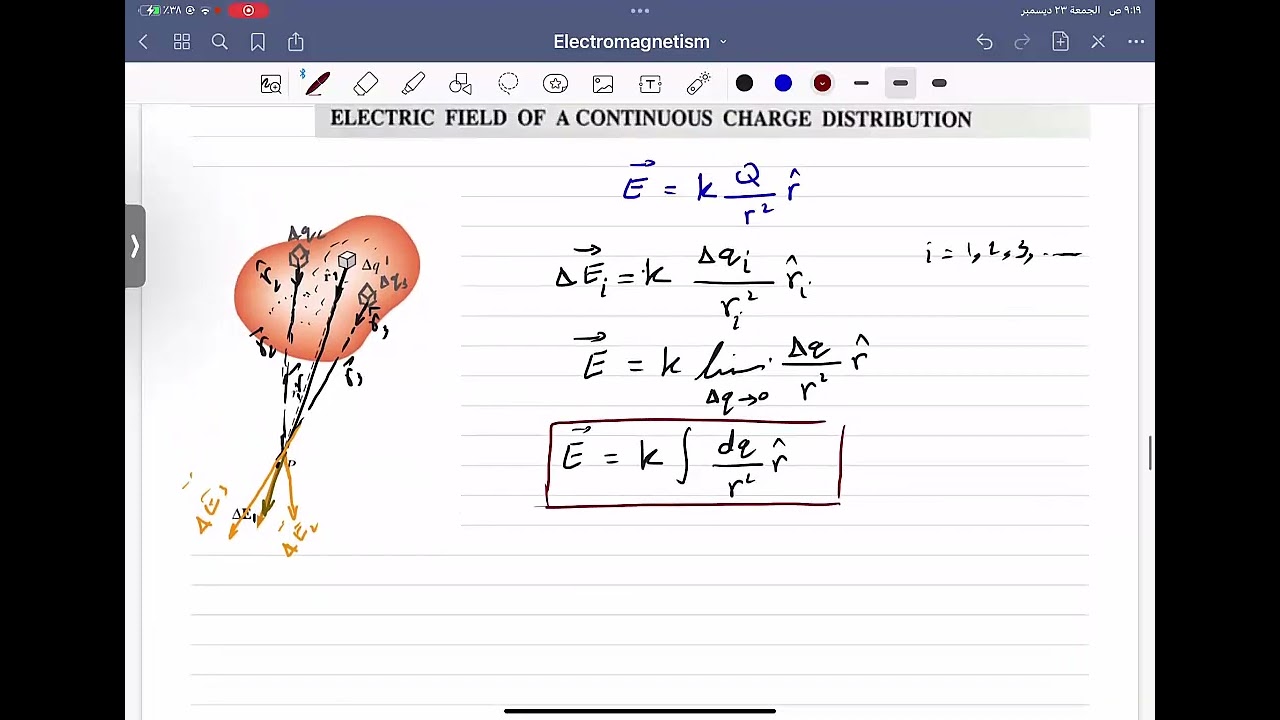 ٣٨٪
٩:١٩ ص الجمعة ٢٣ ديسمبر
Electromagnetism
ELECTRIC FIELD OF A CONTINUOUS CHARGE DISTRIBUTION
E⃗ = k Q/r² r̂
ΔE⃗ᵢ = k Δqᵢ/rᵢ² r̂ᵢ
i = 1, 2, 3, ....
E⃗ = k lim Δq→0 Δq/r² r̂
E⃗ = k ∫ dq/r² r̂
Δq₂
Δq₁
Δq₃
r̂₂
r̂₁
r̂₃
r₂
r₁
r₃
P
ΔE₃
ΔE₁
ΔE₂